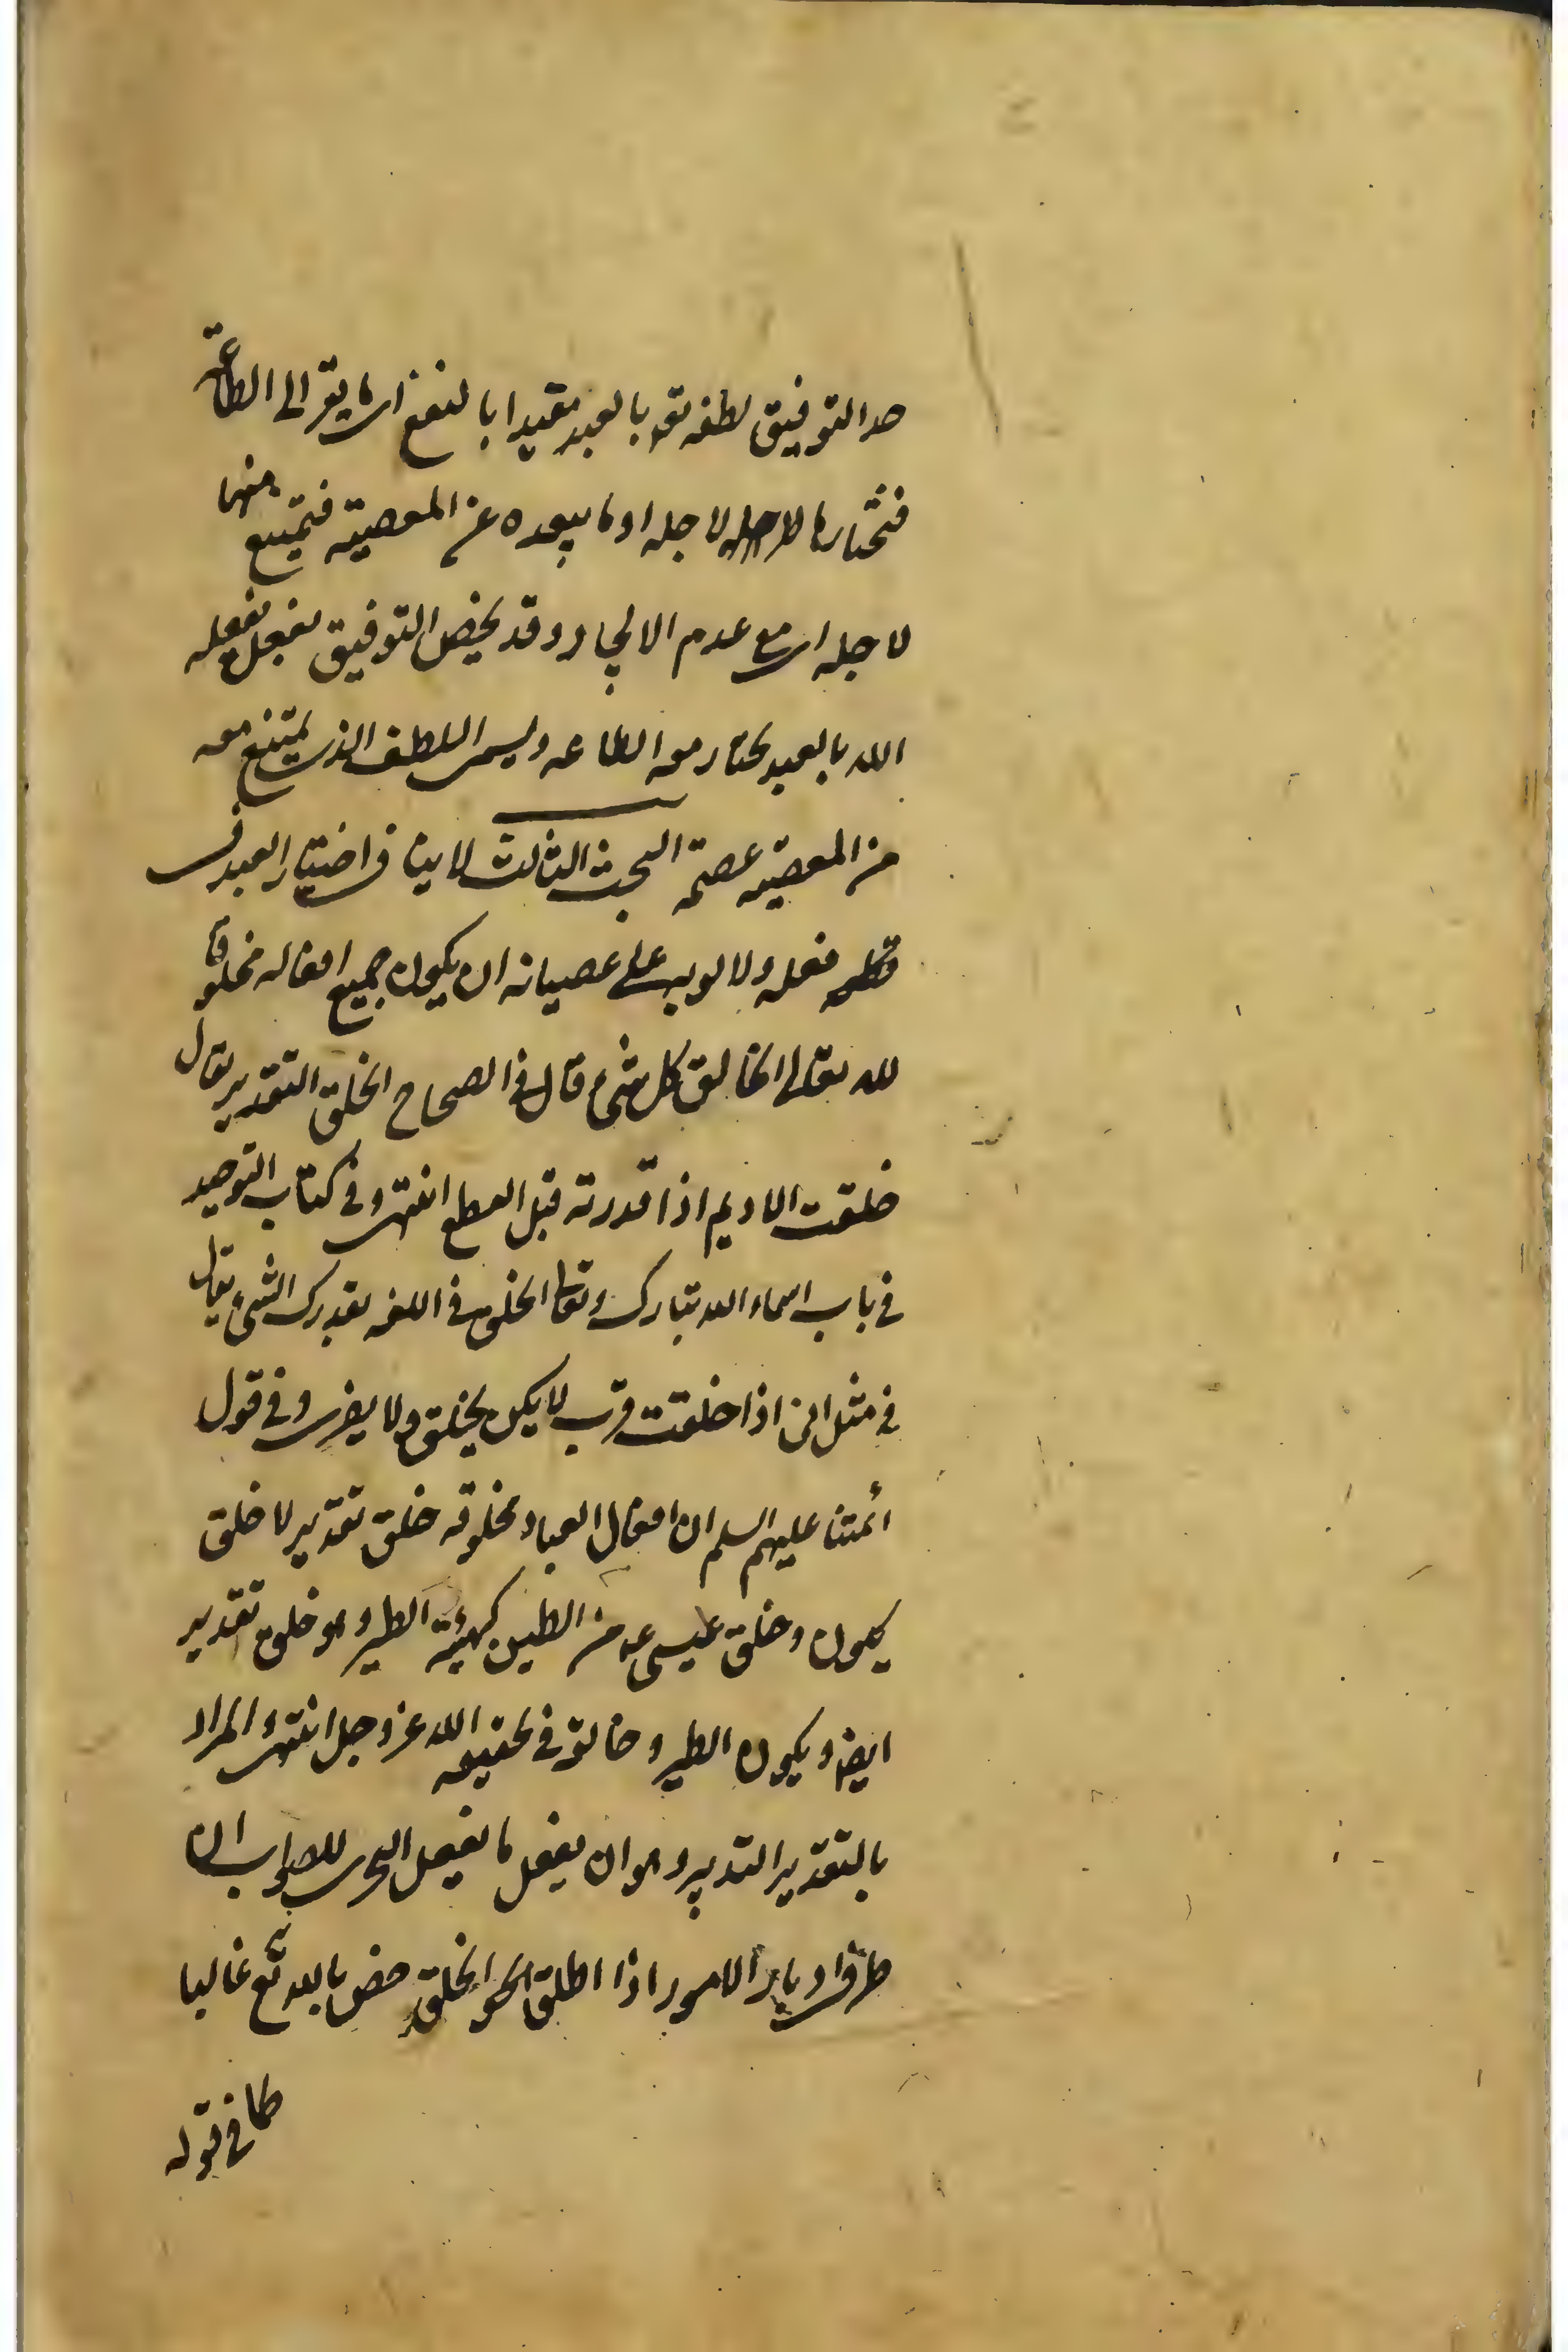 حد التوفيق لطفه تعه بالعبد مقيدا بالنفع اى ما يقر الى الطاعة
فتختارها لاجله اوما يبعده عن المعصية فيمتنع منها
لاجله اى مع عدم الالجاء وقد يخص التوفيق بفعل يفعله
الله بالعبد يختار معه الطاعه ويسمى اللطف الذى يمتنع معه
من المعصيه عصمة البحث الثالث لا ينافى اختيار العبد فى
فعله ولا على عصيانه ان يكون جميع افعاله مخلوقا
لله تعالى الخالق كل شىء قال فى الصحاح الخلق التقدير يقال
خلقت الاديم اذا قدرته قبل القطع انتهى وفى كتاب التوحيد
فى باب اسماء الله تبارك وتعالى الخلق فى اللغه تقديرك الشىء يقال
فى مثل انى اذا خلقت فريت لا كمن يخلق ولا يفرى وفى قول
ائمتنا عليهم السلم ان افعال العباد مخلوقه خلق تقدير لا خلق
تكوين وخلق عيسى عه من الطين كهيئة الطير هو خلق تقدير
ايضا ويكون الطير وخالقه فى الحقيقه الله عز وجل انتهى والمراد
بالتقدير التدبير وهو ان يفعل ما يفعل المتحرى للصواب الى
ادبار الامور اذا اطلق الخلق خص بالله تع غالبا
كما فى قوله